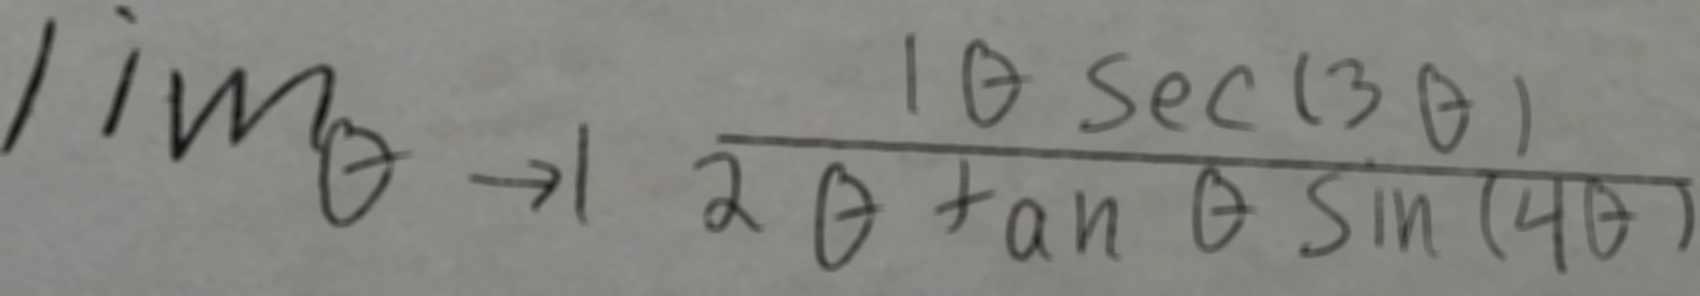 lim θ→1 1θ sec(3θ) / 2θ tan θ sin(4θ)